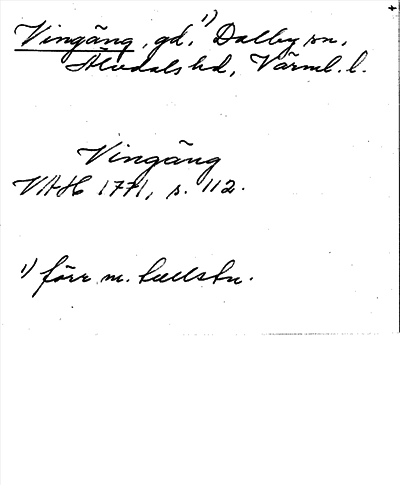 Vingäng, gd.¹) Dalby sn,
Älvdals hd, Värml. l.
Vingäng
VAH 1771, s. 112.
¹) förr m. tullstn.